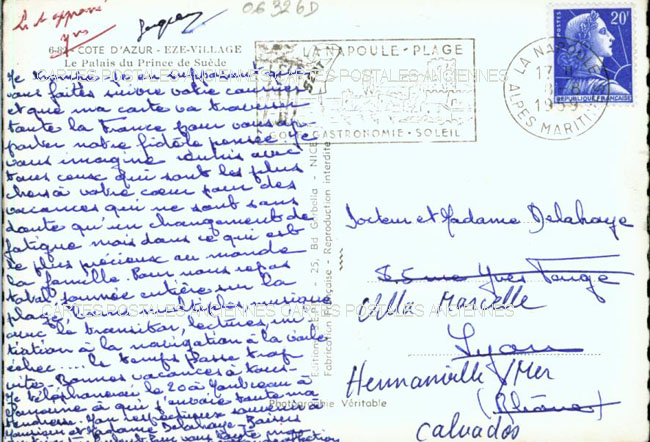 06 326D
Lu et approuvé
Yves
Jacques
6-82 - COTE D'AZUR - EZE-VILLAGE
Le Palais du Prince de Suède
vous faites suivre votre courrier
et que ma carte va traverser
toute la France pour vous ap-
porter notre fidèle pensée. Je
vous imagine réunis avec
tous ceux qui sont les plus
chers à votre cœur pour des
vacances qui ne sont sans
doute qu'un changement de
fatigue mais dans ce qui est
le plus précieux au monde
la famille. Pour nous repos
total, journée entière sur la
plage musique
avec le transistor, lectures, ini-
tiation à la navigation à la voile
échec .... le temps passe trop
vite. Bonnes vacances à tous.
Je téléphonerai le 20 à
à qui j'envoie toute ma
tendresse.
et Madame Delahaye. Baisers
LA NAPOULE - PLAGE
GOLF - GASTRONOMIE - SOLEIL
LA NAPOULE
1959
ALPES MARITIMES
20F
REPUBLIQUE FRANÇAISE
25, Bd Gorbella - NICE
Fabrication Française - Reproduction interdite
Photographie Véritable
Docteur et Madame Delahaye
85 rue Yves Farge
Villa Marcelle
Lyon
Hermanville s/Mer
(Rhône)
Calvados
CARTES POSTALES ANCIENNES CARTES POSTALES ANCIENNES
CARTES POSTALES ANCIENNES CARTES POSTALES ANCIENNES